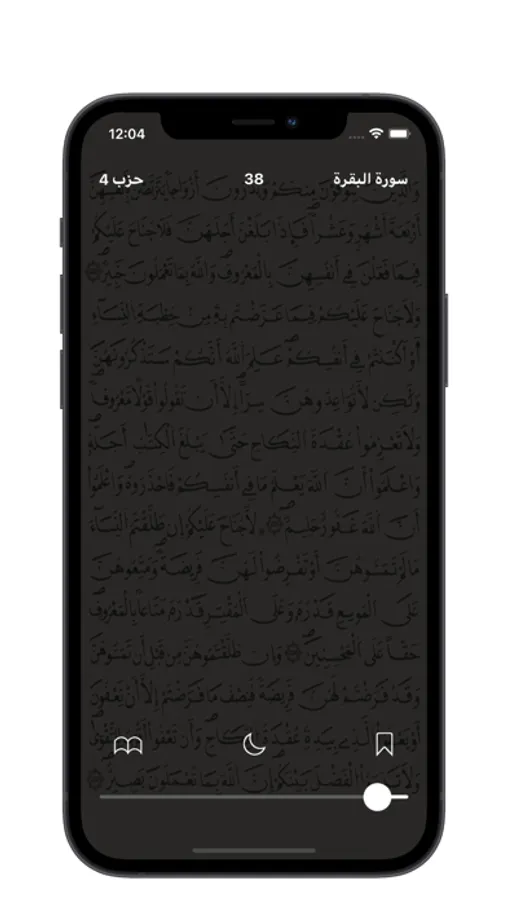 12:04
سورة البقرة 38 حزب 4
وَالَّذِينَ يُتَوَفَّوْنَ مِنكُمْ وَيَذَرُونَ أَزْوَاجًا يَتَرَبَّصْنَ بِأَنفُسِهِنَّ
أَرْبَعَةَ أَشْهُرٍ وَعَشْرًا فَإِذَا بَلَغْنَ أَجَلَهُنَّ فَلَا جُنَاحَ عَلَيْكُمْ
فِيمَا فَعَلْنَ فِي أَنفُسِهِنَّ بِالْمَعْرُوفِ وَاللَّهُ بِمَا تَعْمَلُونَ خَبِيرٌ
وَلَا جُنَاحَ عَلَيْكُمْ فِيمَا عَرَّضْتُم بِهِ مِنْ خِطْبَةِ النِّسَاءِ
أَوْ أَكْنَنتُمْ فِي أَنفُسِكُمْ عَلِمَ اللَّهُ أَنَّكُمْ سَتَذْكُرُونَهُنَّ
وَلَٰكِن لَّا تُوَاعِدُوهُنَّ سِرًّا إِلَّا أَن تَقُولُوا قَوْلًا مَّعْرُوفًا
وَلَا تَعْزِمُوا عُقْدَةَ النِّكَاحِ حَتَّىٰ يَبْلُغَ الْكِتَٰبُ أَجَلَهُ
وَاعْلَمُوا أَنَّ اللَّهَ يَعْلَمُ مَا فِي أَنفُسِكُمْ فَاحْذَرُوهُ وَاعْلَمُوا
أَنَّ اللَّهَ غَفُورٌ حَلِيمٌ لَّا جُنَاحَ عَلَيْكُمْ إِن طَلَّقْتُمُ النِّسَاءَ
مَا لَمْ تَمَسُّوهُنَّ أَوْ تَفْرِضُوا لَهُنَّ فَرِيضَةً وَمَتِّعُوهُنَّ
عَلَى الْمُوسِعِ قَدَرُهُ وَعَلَى الْمُقْتِرِ قَدَرُهُ مَتَاعًا بِالْمَعْرُوفِ
حَقًّا عَلَى الْمُحْسِنِينَ وَإِن طَلَّقْتُمُوهُنَّ مِن قَبْلِ أَن تَمَسُّوهُنَّ
وَقَدْ فَرَضْتُمْ لَهُنَّ فَرِيضَةً فَنِصْفُ مَا فَرَضْتُمْ إِلَّا أَن يَعْفُونَ
أَوْ يَعْفُوَ الَّذِي بِيَدِهِ عُقْدَةُ النِّكَاحِ وَأَن تَعْفُوا أَقْرَبُ لِلتَّقْوَىٰ
وَلَا تَنسَوُا الْفَضْلَ بَيْنَكُمْ إِنَّ اللَّهَ بِمَا تَعْمَلُونَ بَصِيرٌ